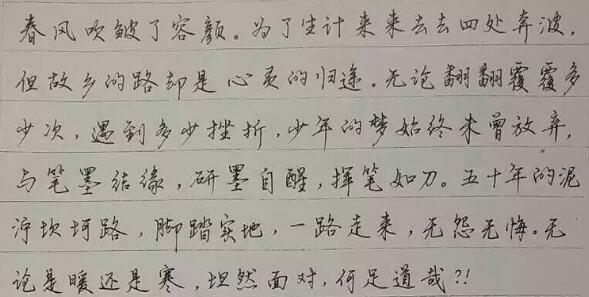 春风吹皱了容颜。为了生计来来去去四处奔波，
但故乡的路却是心灵的归途。无论翻翻覆覆多
少次，遇到多少挫折，少年的梦始终未曾放弃，
与笔墨结缘，研墨自醒，挥笔如刀。五十年的泥
泞坎坷路，脚踏实地，一路走来，无怨无悔。无
论是暖还是寒，坦然面对，何足道哉?!